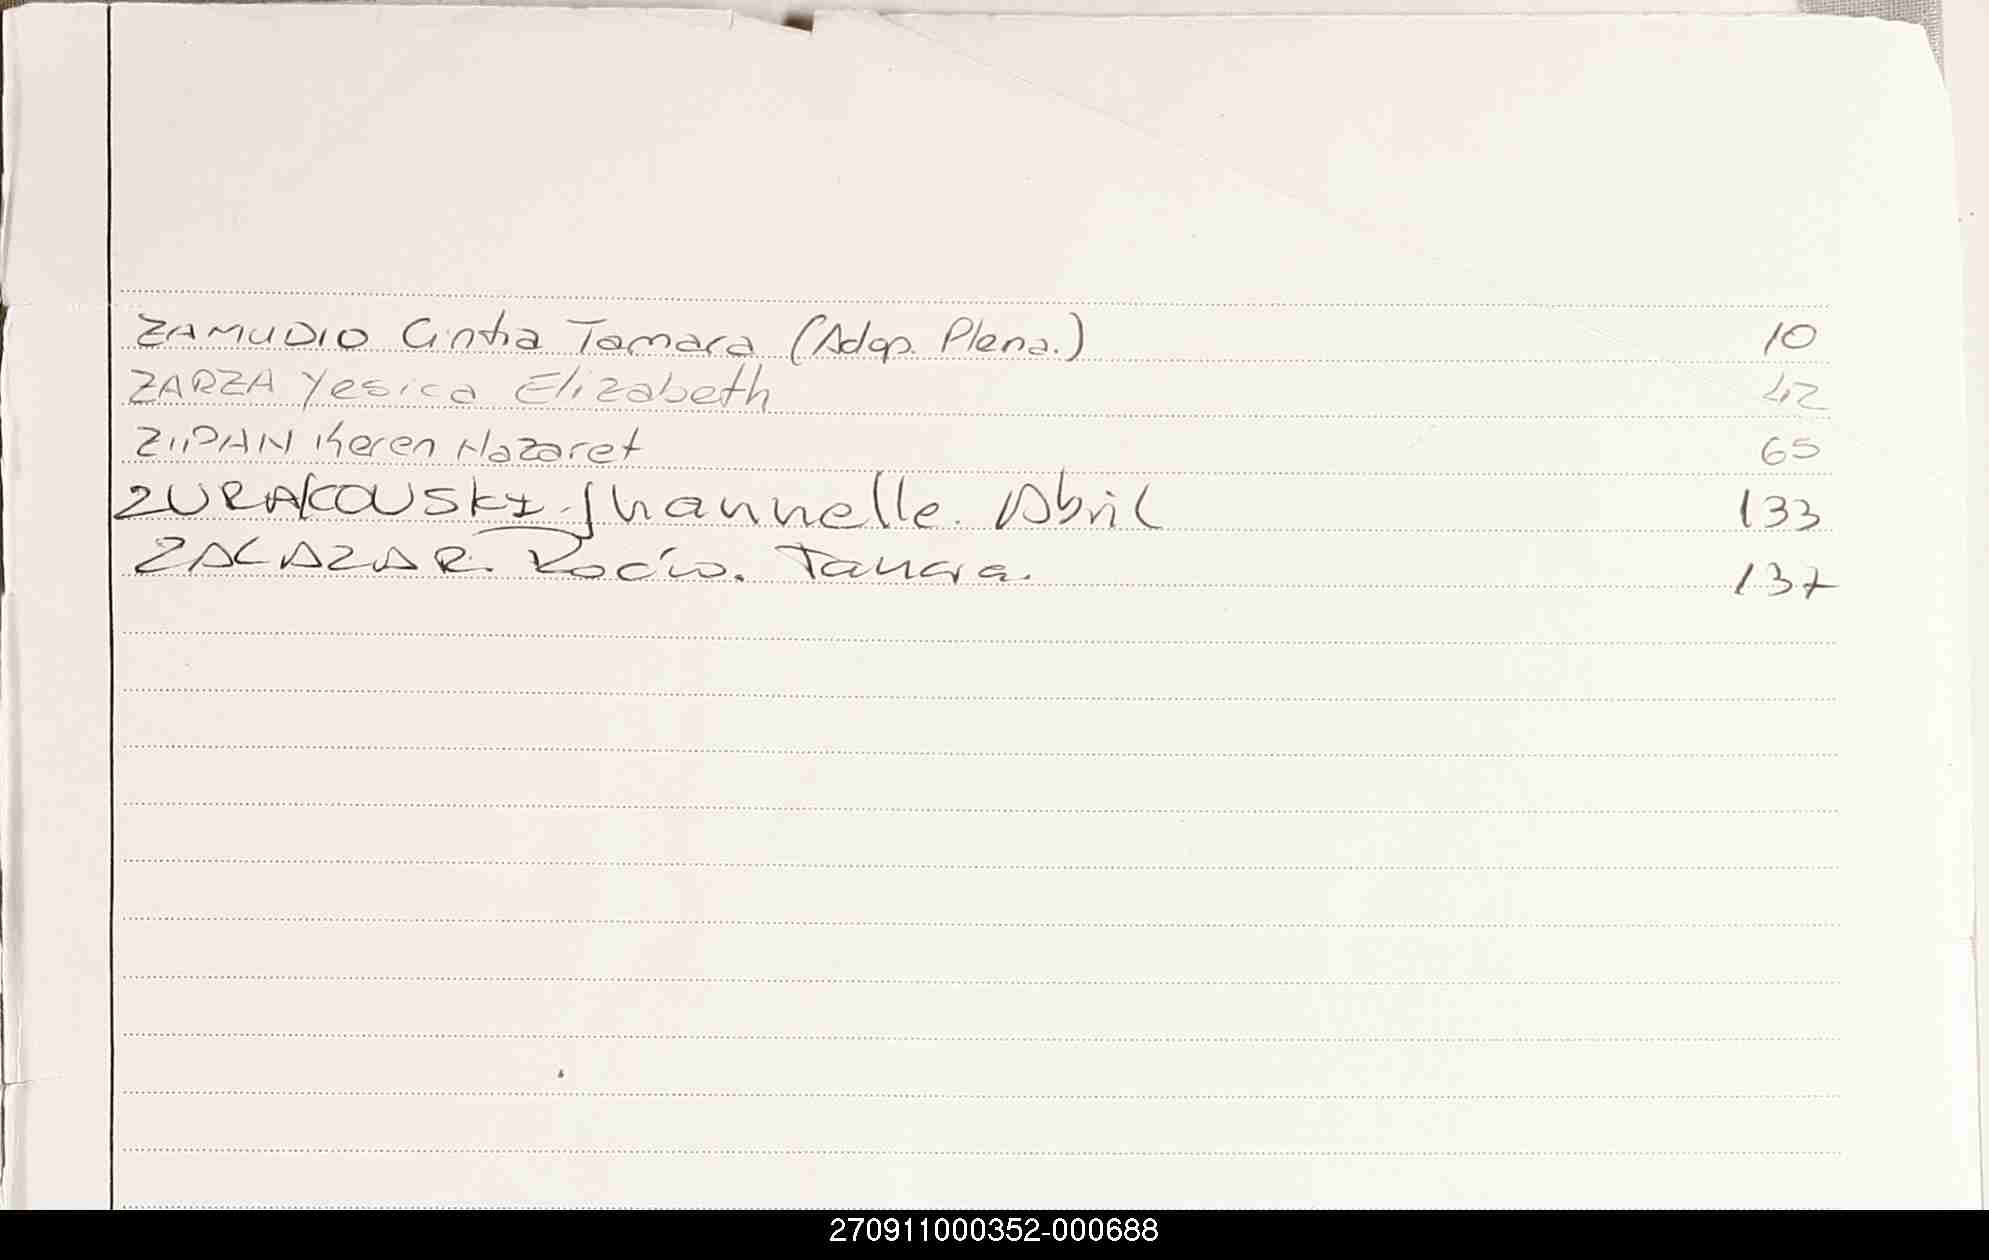 ZAMUDIO Cintia Tamara (Adop. Plena.) 10
ZARZA Yesica Elizabeth 42
Keren Nazaret 65
ZURAKOUSKI Jhannelle. Abril 133
ZALAZAR. Rocío. Tamara. 137
270911000352-000688